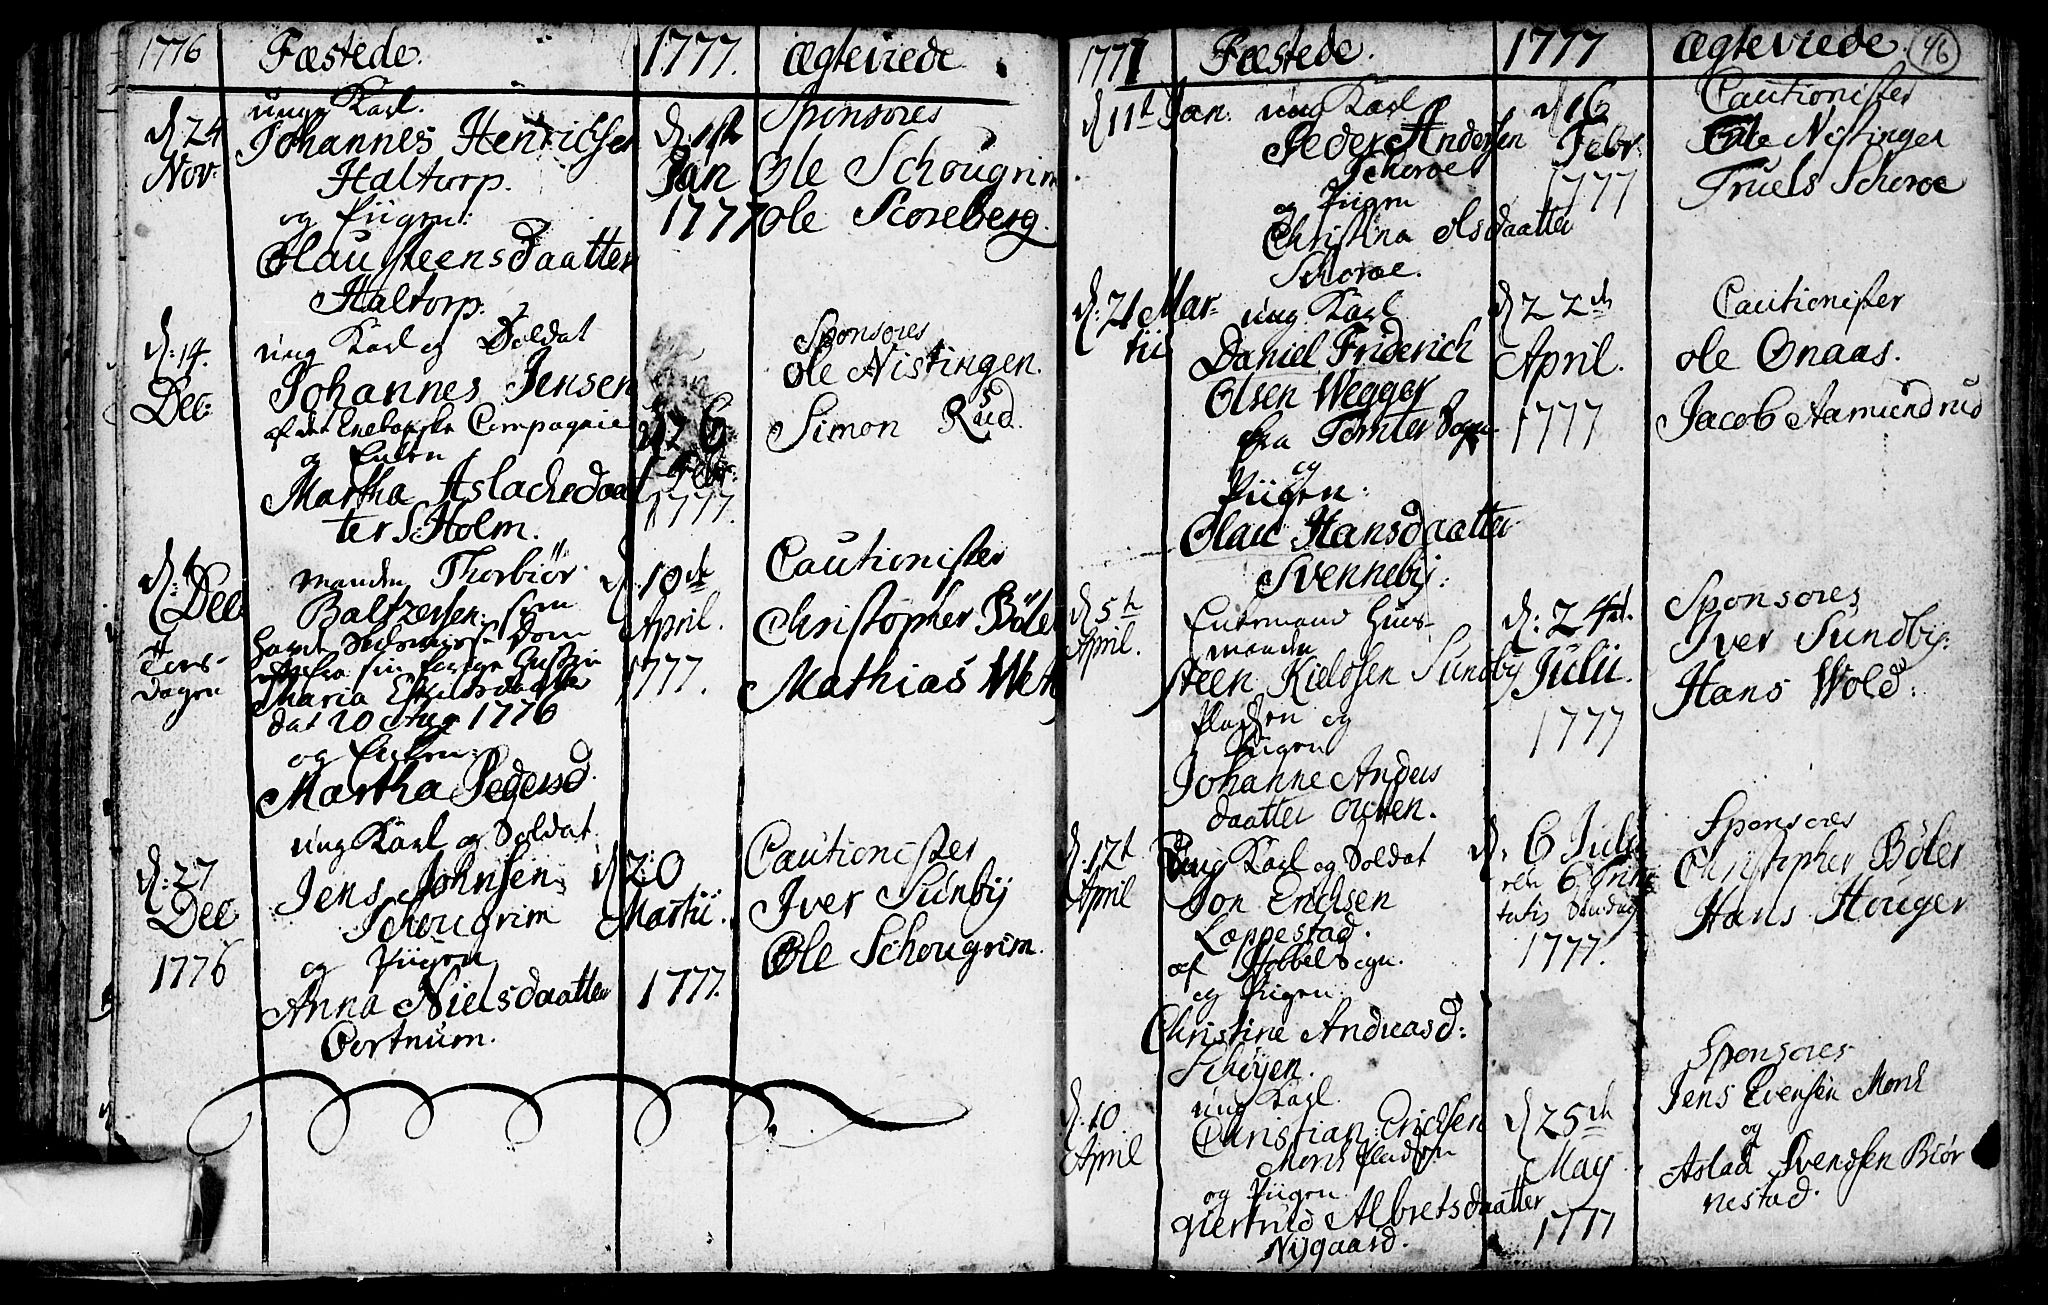 1776 Fæstede. 1777. Ægteviede.
d: 24 Nov:
ung Karl.
Johannes Henrichsen
Haltorp.
og Piigen:
Olau Steensdaatter
Haltorp.
d: 1ste
Jan
1777
Sponsores
Ole Schougrim
Ole Scoreberg.
d: 14.
Dec:
ung Karl og Soldat
Johannes Jensen
af det Enebakske Compagnie
og Enken
Martha Aslachsdaat
ter S: Holm.
d: 26
Febr:
1777.
Sponsores
Ole Nistingen.
Simon Rud.
d:
Dec
Tors-
dagen
manden Thorbiör
Baltzersen: som
Maria
dat 20 Aug 1776
og Enken:
Martha Pedersd.
d. 10de
April.
1777.
Cautionister
Christopher Böler
Mathias
d: 27
Dec
1776
ung Karl og Soldat
Jens Johnsen
Schougrim
og Piigen
Anna Nielsdaatter
Oortnum.
d 20
Martii.
1777.
Cautionister
Iver Sunby
Ole Schougrim.
1777 Fæstede. 1777 Ægteviede. 46
d 11te Jan.
ung Karl
Peder Andersen
Schoroe
og Piigen
Christina Olsdaatter
Schoroe.
d 16
Febr:
1777
Cautionister
Ole Nistingen
Truels Schoroe
d: 21 Mar-
tii
ung Karl
Daniel Friderich
Olsen Wegger
fra Tomter Sogn
og
Piigen:
Olau Hansdaatter
Svenneby:
d 22de
April.
1777
Cautionister
Ole Onaas.
Jacob Aamundrud
d 5te
April.
Enkemand Huus-
manden
Steen Kieldsen Sundby
Pladsen og
Piigen
Johanne Anders
daatter
d: 24de
Julii.
1777
Sponsores
Iver Sundby:
Hans Wold:
d. 12te
April
Ung Karl og Soldat
Jon Erichsen
Loppestad.
af Hobbel Sogn.
og Piigen:
Christine Andreasd:
Schöyen.
d. 6 Julii
den 6 Trini-
tatis Søndag
1777.
Sponsores
Christopher Böler
Hans Houger
d. 10.
April
ung Karl.
Christian Erichsen
Monk Pladsen
og Piigen
Giertrud Albretsdaatter
Nygaard.
d 25de
May
1777
Sponsores
Jens Evensen Monk
og
Aslad Svendsen Biör
nestad.